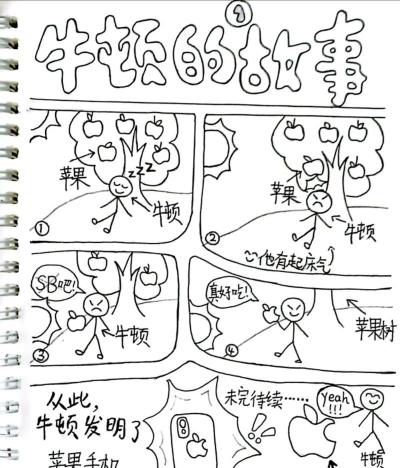 ④
牛顿的故事
苹果
zzz
牛顿
①
苹果
牛顿
②
他有起床气
SB吧!
牛顿
③
真好吃!
苹果树
④
从此,
牛顿发明了
苹果手机
未完待续……
yeah
!!!
牛顿